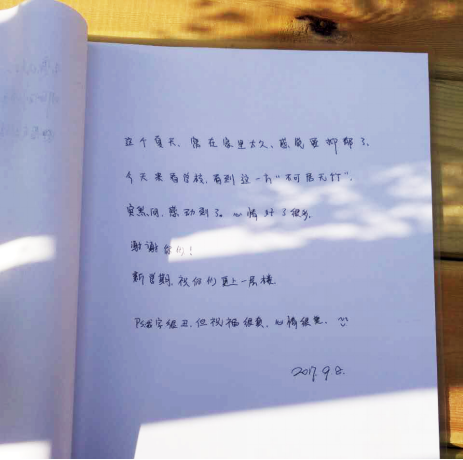 这个夏天，窝在家里太久，感觉要抑郁了。
今天来看学校，看到这一方“不可居无竹”，
突然间，感动到了。心情好了很多。
谢谢你们！
新学期，祝你们更上一层楼
字很丑，但祝福很真，心情很美。
2017.9.8.